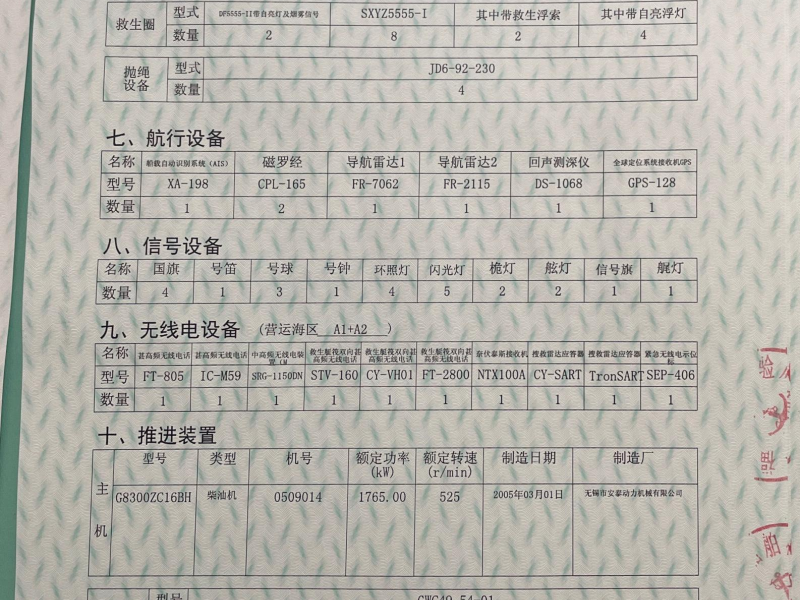 救生圈 型式 DF5555-II带自亮灯及烟雾信号 SXYZ5555-I 其中带救生浮索 其中带自亮浮灯
数量 2 8 2 4
抛绳设备 型式 JD6-92-230
数量 4
七、航行设备
名称 船载自动识别系统(AIS) 磁罗经 导航雷达1 导航雷达2 回声测深仪 全球定位系统接收机GPS
型号 XA-198 CPL-165 FR-7062 FR-2115 DS-1068 GPS-128
数量 1 2 1 1 1 1
八、信号设备
名称 国旗 号笛 号球 号钟 环照灯 闪光灯 桅灯 舷灯 信号旗 艉灯
数量 4 1 3 1 4 5 2 2 1 1
九、无线电设备 (营运海区 A1+A2 )
名称 甚高频无线电话 甚高频无线电话 中高频无线电装置(M 救生艇筏双向甚高频无线电话 救生艇筏双向甚高频无线电话 救生艇筏双向甚高频无线电话 奈伏泰斯接收机 搜救雷达应答器 搜救雷达应答器 紧急无线电示位标
型号 FT-805 IC-M59 SRG-1150DN STV-160 CY-VH01 FT-2800 NTX100A CY-SART TronSART SEP-406
数量 1 1 1 1 1 1 1 1 1 1
十、推进装置
主机 型号 类型 机号 额定功率(kW) 额定转速(r/min) 制造日期 制造厂
G8300ZC16BH 柴油机 0509014 1765.00 525 2005年03月01日 无锡市安泰动力机械有限公司
型号 GWC49.54-01
验
船